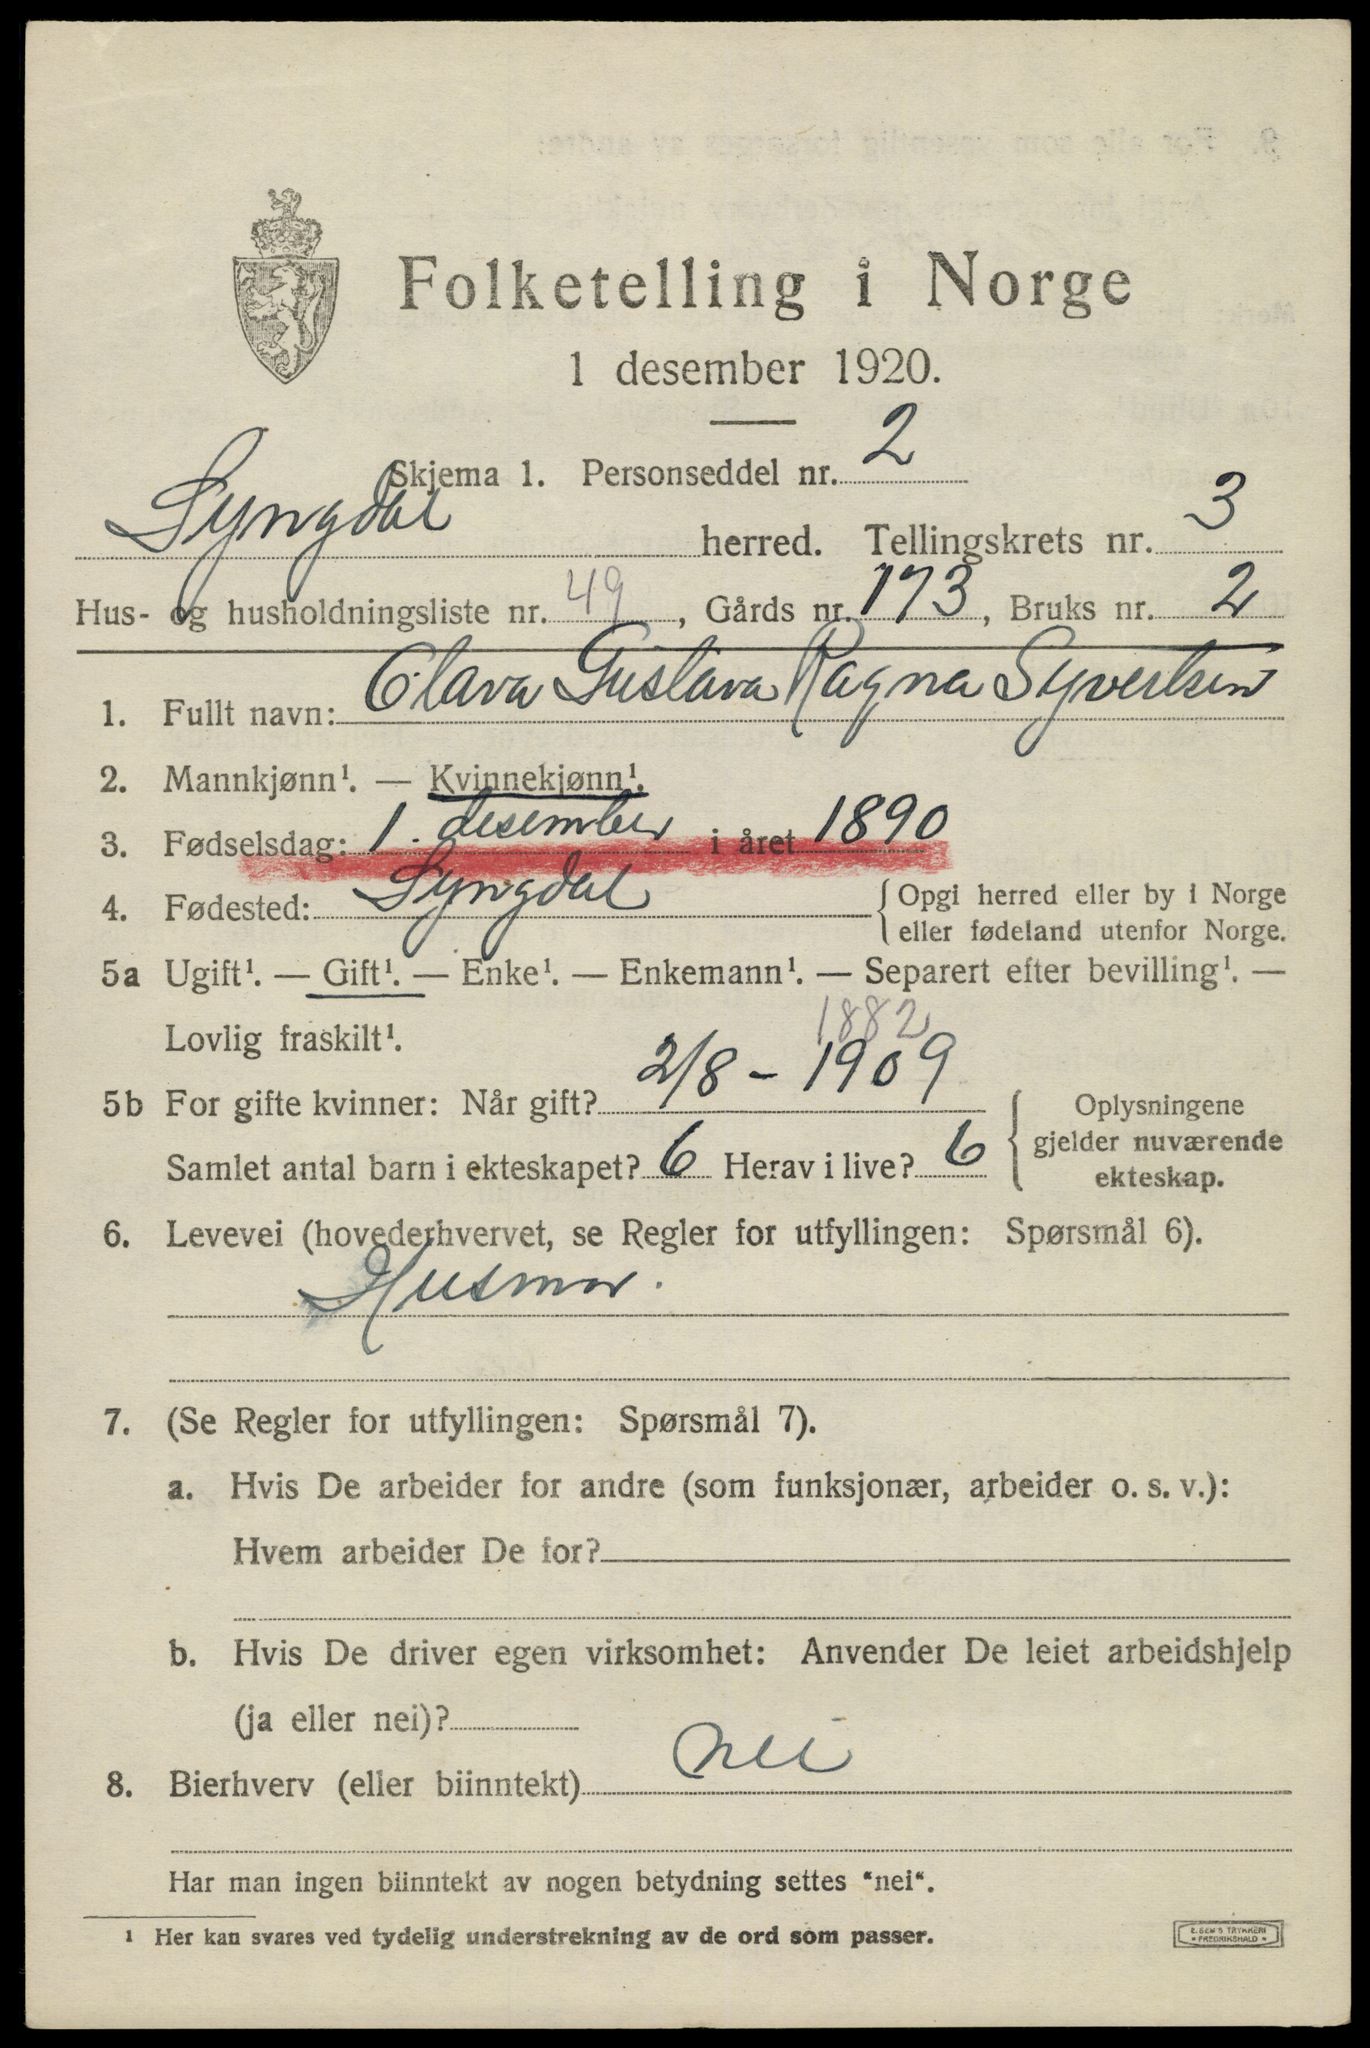 Folketelling i Norge
1 desember 1920.
Skjema 1. Personseddel nr. 2
Lyngdal herred. Tellingskrets nr. 3
Hus- og husholdningsliste nr. 49, Gårds nr. 173, Bruks nr. 2
1. Fullt navn: Olava Gustava Ragna Syvertsen
2. Mannkjønn¹. — Kvinnekjønn¹.
3. Fødselsdag: 1. desember i året 1890
4. Fødested: Lyngdal {Opgi herred eller by i Norge
eller fødeland utenfor Norge.
5a Ugift¹. — Gift¹. — Enke¹. — Enkemann¹. — Separert efter bevilling¹. —
Lovlig fraskilt¹.
1882
5b For gifte kvinner: Når gift? 2/8 - 1909
Samlet antal barn i ekteskapet? 6 Herav i live? 6
Oplysningene
gjelder nuværende
ekteskap.
6. Levevei (hovederhvervet, se Regler for utfyllingen: Spørsmål 6).
Husmor.
7. (Se Regler for utfyllingen: Spørsmål 7).
a. Hvis De arbeider for andre (som funksjonær, arbeider o. s. v.):
Hvem arbeider De for?
b. Hvis De driver egen virksomhet: Anvender De leiet arbeidshjelp
(ja eller nei)?
8. Bierhverv (eller biinntekt) nei
Har man ingen biinntekt av nogen betydning settes "nei".
¹ Her kan svares ved tydelig understrekning av de ord som passer.
TRYKKERI
FREDRIKSHALD